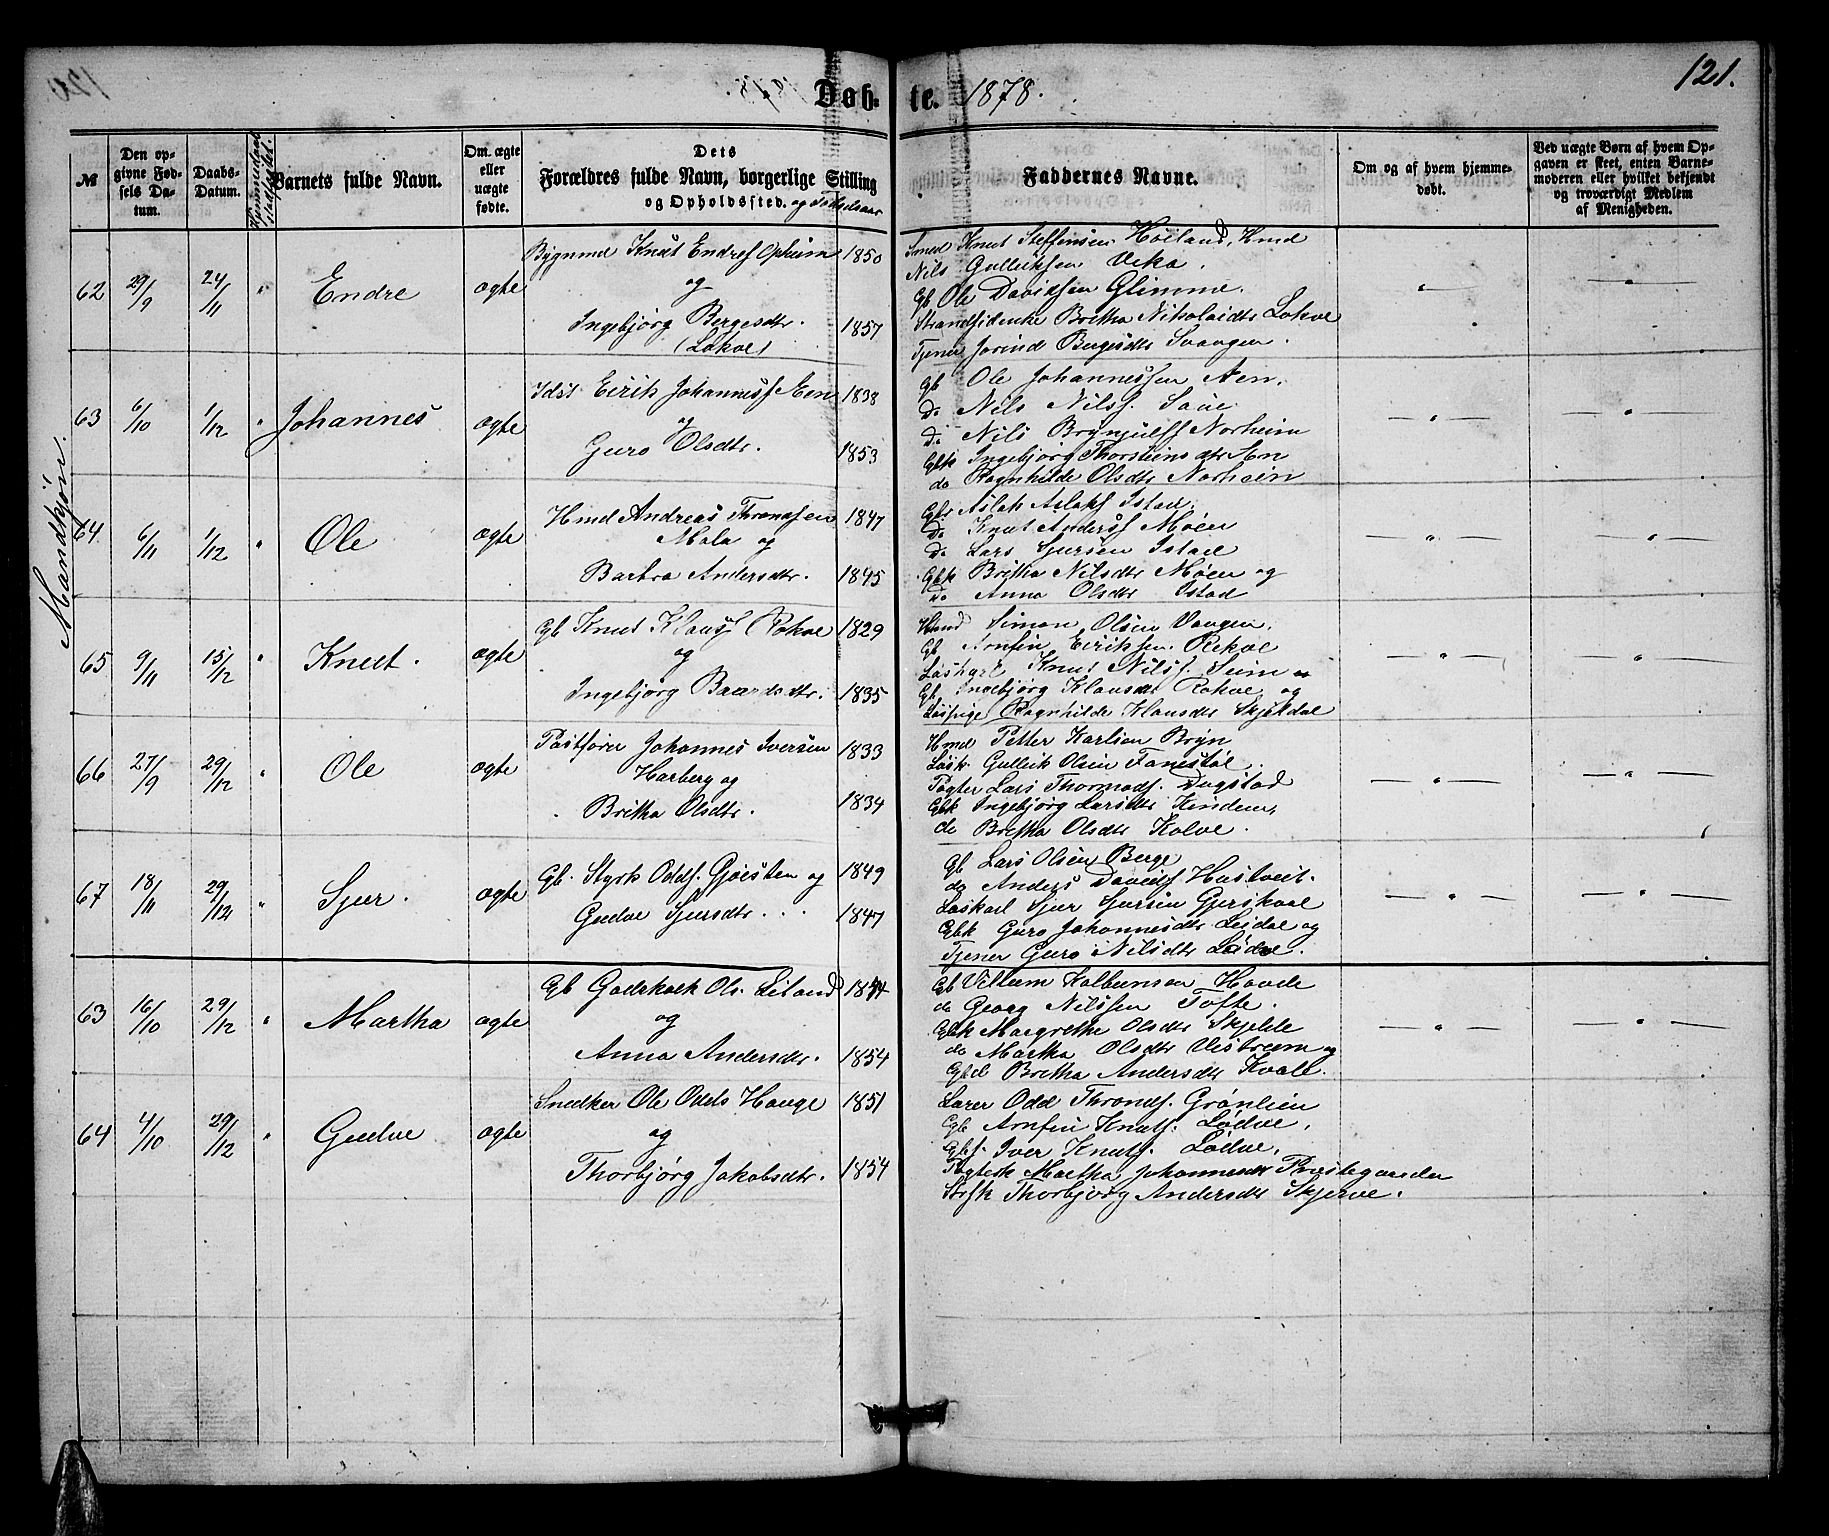 121.
Døb- te. 1878.
№
Den op-
givne Fød-
sels Da-
tum.
Daabs-
Datum.
Barnets fulde Navn.
Om ægte
eller
uægte
fødte.
Dets
Forældres fulde Navn, borgerlige Stilling
og Opholdssted. og Fødselsaar
Faddernes Navne.
Om og af hvem hjemme-
døbt.
Ved uægte Børn af hvem Op-
gaven er skeet, enten Barne-
moderen eller hvilket bekjendt
og troværdigt Medlem
af Menigheden.
Mandkjøn.
62 29/9 24/11 " Endre ægte
Bygnmd Knut Endresf Opheim 1850
og
Ingebjørg Bergesdtr. 1857
(Lokve)
Smed Knut Steffensen Höiland, Hmd
Nils Gulleiksen Veka.
Gb Ole Davidsen Glimme.
Strandsidenke Britha Nikolaidtr Lokve
Tjener Jorind Bergesdtr Svangen.
63 6/10 1/12 " Johannes ægte
Idst Eirik Johannesf Æen 1838
og
Guro Olsdtr. 1853
Gb Ole Johannessen Æen,
Do Nils Nilsf. Saue.
Do Nils Brynjulff Norheim
Gbk Ingebjørg Thorsteinsdtr Æen
do Ragnhilde Olsdtr Norheim
64 6/11 1/12 " Ole ægte
Hmd Andreas Throndsen 1847
Mala og
Barbra Andersdtr. 1845
Gbs Aslak Aslaksf Istad,
Do Knut Andersf Møen
Do Lars Sjursen Istad
Gbk Britha Nilsdtr Møen og
Do Anna Olsdtr Istad
65 9/11 15/12 " Knut. ægte
Gb Knut Klausf Rokve 1829
og
Ingebjørg Baardsdtr. 1835
Hmd Simon Olsen Vangen.
Gb Arnfin Eiriksen Rekve
Løskarl Knut Nilsf. Seim
Gb Ingebjørg Klausdtr Rokve og
Løspige Ragnhilde Klausdtr Skjeldal
66 27/9 29/12 " Ole ægte
Postfører Johannes Iversen 1833
Horberg og
Britha Olsdtr. 1834
Hmd Petter Karlsen Bryn
Løsk. Gulleik Olsen Fanestøl.
Pagter Lars Thormodsf. Dugstad
Gbk Ingebjørg Larsdtr Kindem,
do Britha Olsdtr Kolve.
67 18/11 29/12 " Sjur. ægte
Gb. Styrk Oddsf. Gjøesten og 1849
Gudve Sjursdtr. 1847
Gb Lars Olsen Berge
do Anders Davidsf. Hustveit.
Løskarl Sjur Sjursen Gjerskval
Gbk Guro Johannesdtr Leidal og
Tjener Guro Nilsdtr Lødve.
63 16/10 29/12 " Martha ægte
Gb Ols. Liland
og
Anna Andersdtr. 1854
Gb Villum Kolbeinsen Hovde
do Georg Nilssen Tofte.
Gbk Margrethe Olsdtr Skjelde
do Martha Olsdtr Vestrem og
Gbd Britha Andersdtr Kvale.
64 4/10 29/12 " Gudve ægte
Snedker Ole Odds Hauge 1851
og
Thorbjørg Jakobsdtr. 1854
Lærer Odd Throndsf. Grønlien
Gb Arnfin Knutsf. Lødve,
Gbs. Iver Knutsf. Lødve,
Pagtersk Martha Johannesdtr Præstegarden
Thorbjørg Andersdtr Skjerve.